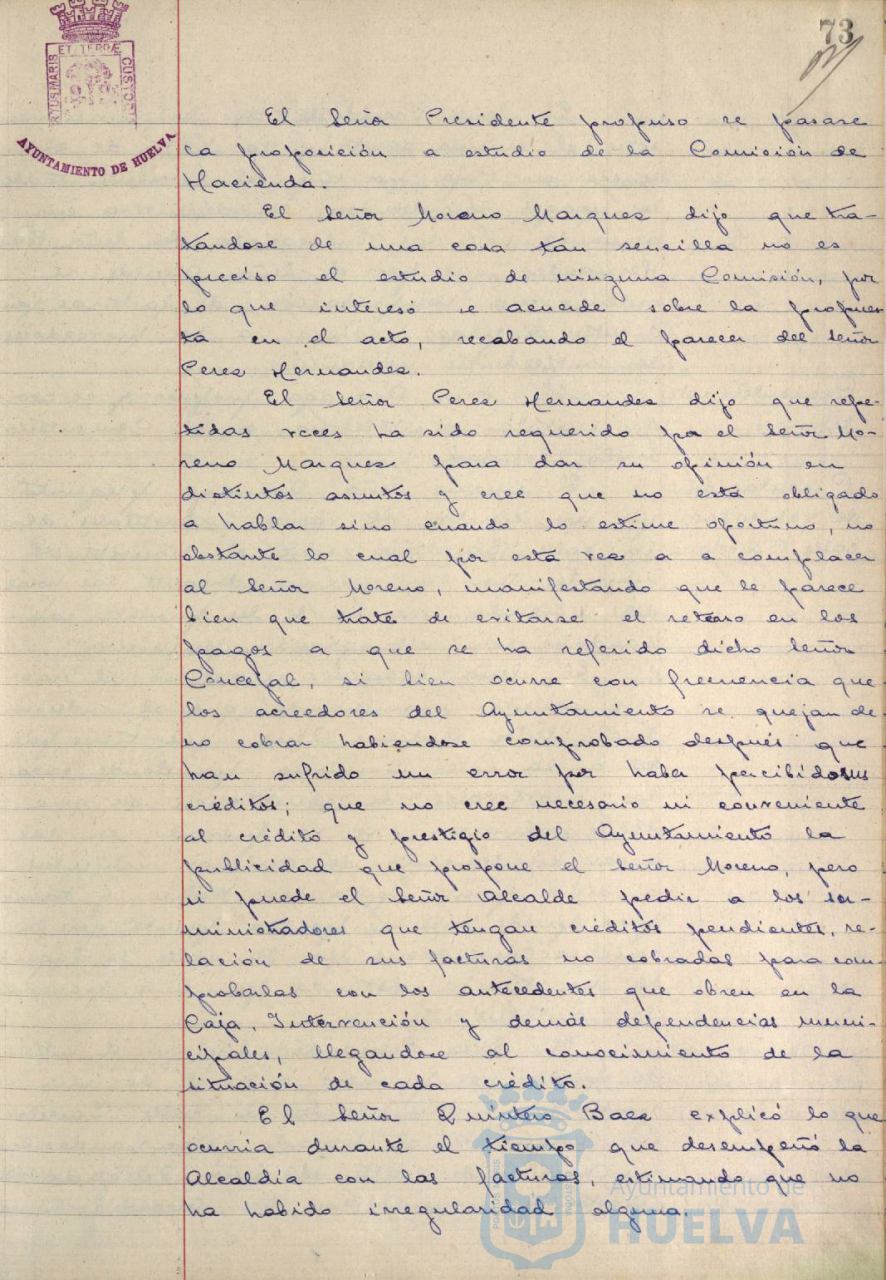 73
ET TERRÆ
CUSTODI
AYUNTAMIENTO DE HUELVA
El Señor Presidente propuso se pasase
la proposición a estudio de la Comisión de
Hacienda.
El Señor Moreno Marquez dijo que tra-
tandose de una cosa tan sencilla no es
preciso el estudio de ninguna Comisión, por
lo que interesó se acuerde sobre la propues-
ta en el acto, recabando el parecer del Señor
Perez Hernandez.
El Señor Perez Hernandez dijo que repe-
tidas veces ha sido requerido por el Señor Mo-
reno Marquez para dar su opinión en
distintos asuntos y cree que no está obligado
a hablar sino cuando lo estime oportuno, no
obstante lo cual por esta vez a a complacer
al Señor Moreno, manifestando que le parece
bien que trate de evitarse el retraso en los
pagos a que se ha referido dicho Señor
Concejal, si bien ocurre con frecuencia que
los acreedores del Ayuntamiento se quejan de
no cobrar habiendose comprobado después que
han sufrido un error por haber percibido sus
créditos; que no cree necesario ni conveniente
al crédito y prestigio del Ayuntamiento la
publicidad que propone el Señor Moreno, pero
si puede el Señor Alcalde pedir a los su-
ministradores que tengan créditos pendientes, re-
lación de sus facturas no cobradas para com-
probarlas con los antecedentes que obren en la
Caja, Intervención y demás dependencias muni-
cipales, llegandose al conocimiento de la
situación de cada crédito.
El Señor Quintero Baez explicó lo que
ocurria durante el tiempo que desempeñó la
Alcaldía con las facturas, estimando que no
ha habido irregularidad alguna.
Ayuntamiento de
HUELVA